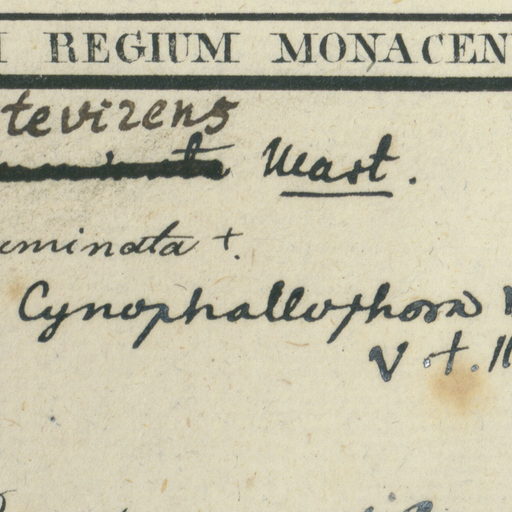 REGIUM MONACEN
tevirens
Mart.
uminata +.
Cynophallophora
V. +.